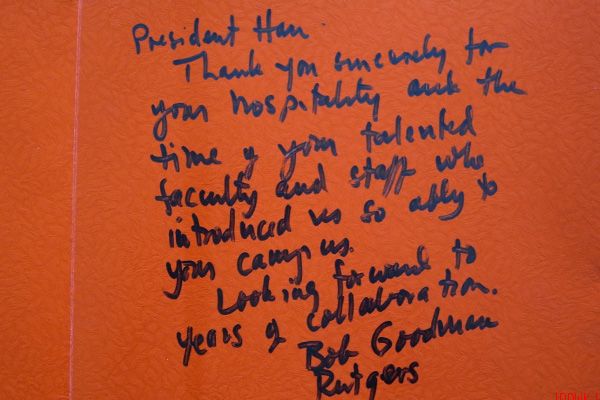 President Han
Thank you sincerely for
your hospitality and the
time of your talented
faculty and staff who
introduced us so ably to
your campus.
Looking forward to
years of collaboration.
Bob Goodman
Rutgers